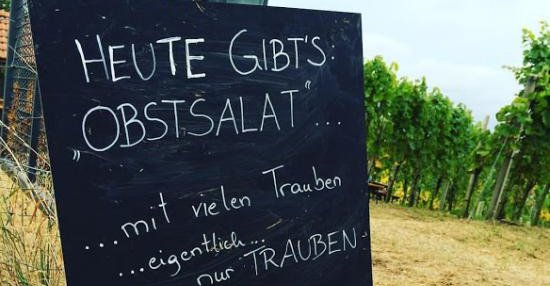 HEUTE GIBT'S
„OBSTSALAT"...
...mit vielen Trauben
...eigentlich...
nur TRAUBEN